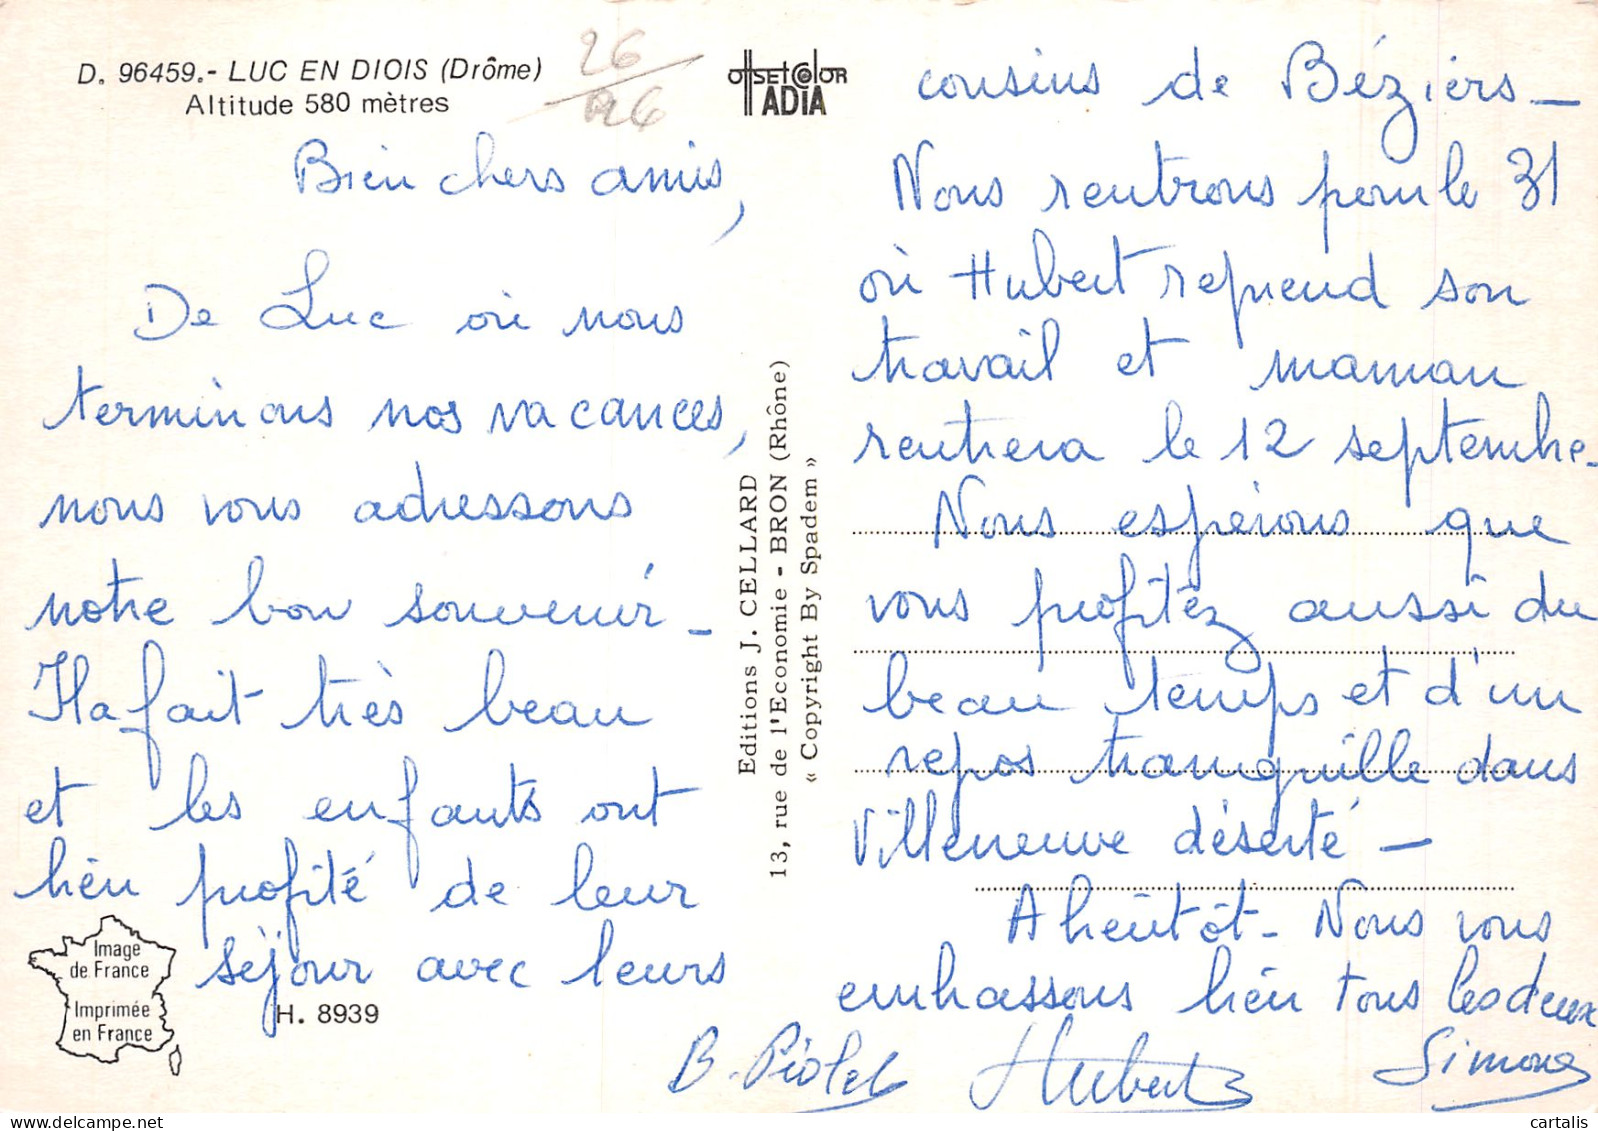 D. 96459.- LUC EN DIOIS (Drôme)
Altitude 580 mètres
26
OFFSET COLOR
ADIA
Bien chers amis,
De Luc où nous
terminons nos vacances,
nous vous adressons
notre bon souvenir –
Il a fait très beau
et les enfants ont
bien profité de leur
séjour avec leurs
cousins de Béziers –
Nous rentrons pour le 31
où Hubert reprend son
travail et maman
rentrera le 12 septembre.
Nous espérons que
vous profitez aussi du
beau temps et d'un
repos tranquille dans
Villeneuve déserté –
A bientôt – Nous vous
embrassons bien tous les deux
B. Piolet Hubert Simone
Editions J. CELLARD
13, rue de l'Economie - BRON (Rhône)
« Copyright By Spadem »
Image
de France
Imprimée
en France
H. 8939
cartalis | delcampe.net